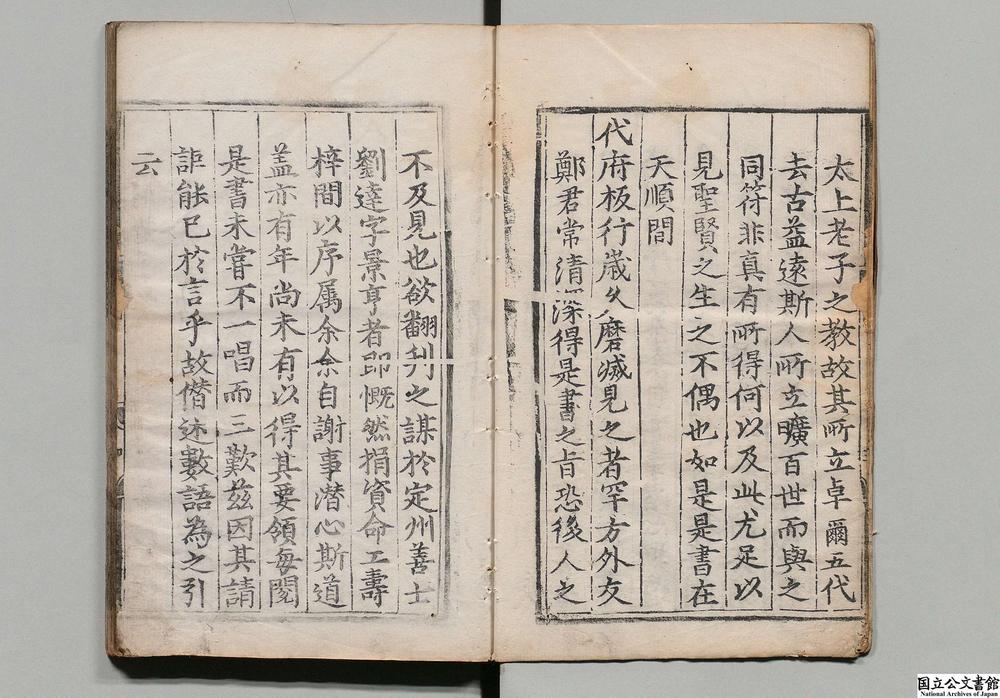 太上老子之教故其所立卓爾五代
去古益遠斯人所立曠百世而與之
同符非真有所得何以及此尤足以
見聖賢之生之不偶也如是是書在
天順間
代府板行歲久磨滅見之者罕方外友
鄭君常清深得是書之旨恐後人之
不及見也欲翻刊之謀於定州善士
劉達字景亨者即慨然捐資命工壽
梓間以序属余余自謝事潜心斯道
盖亦有年尚未有以得其要領每閱
是書未嘗不一唱而三歎兹因其請
詎能已於言乎故僭述數語為之引
云
国立公文書館
National Archives of Japan